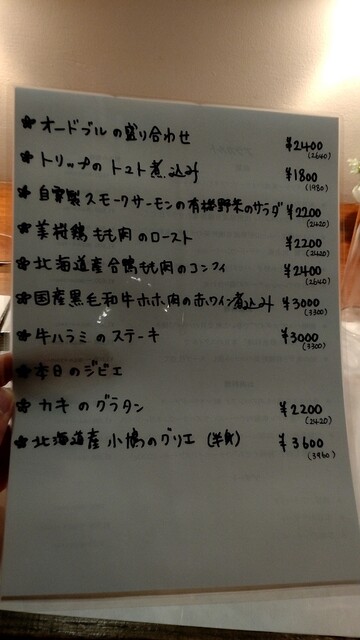 * オードブルの盛り合わせ ¥2400
(2640)
* トリップのトマト煮込み ¥1800
(1980)
* 自家製スモークサーモンの有機野菜のサラダ ¥2200
(2420)
* 美桜鶏もも肉のロースト ¥2200
(2420)
* 北海道産合鴨もも肉のコンフィ ¥2400
(2640)
* 国産黒毛和牛ホホ肉の赤ワイン煮込み ¥3000
(3300)
* 牛ハラミのステーキ ¥3000
(3300)
* 本日のジビエ
* カキのグラタン ¥2200
(2420)
* 北海道産小鳩のグリエ (半身) ¥3600
(3960)